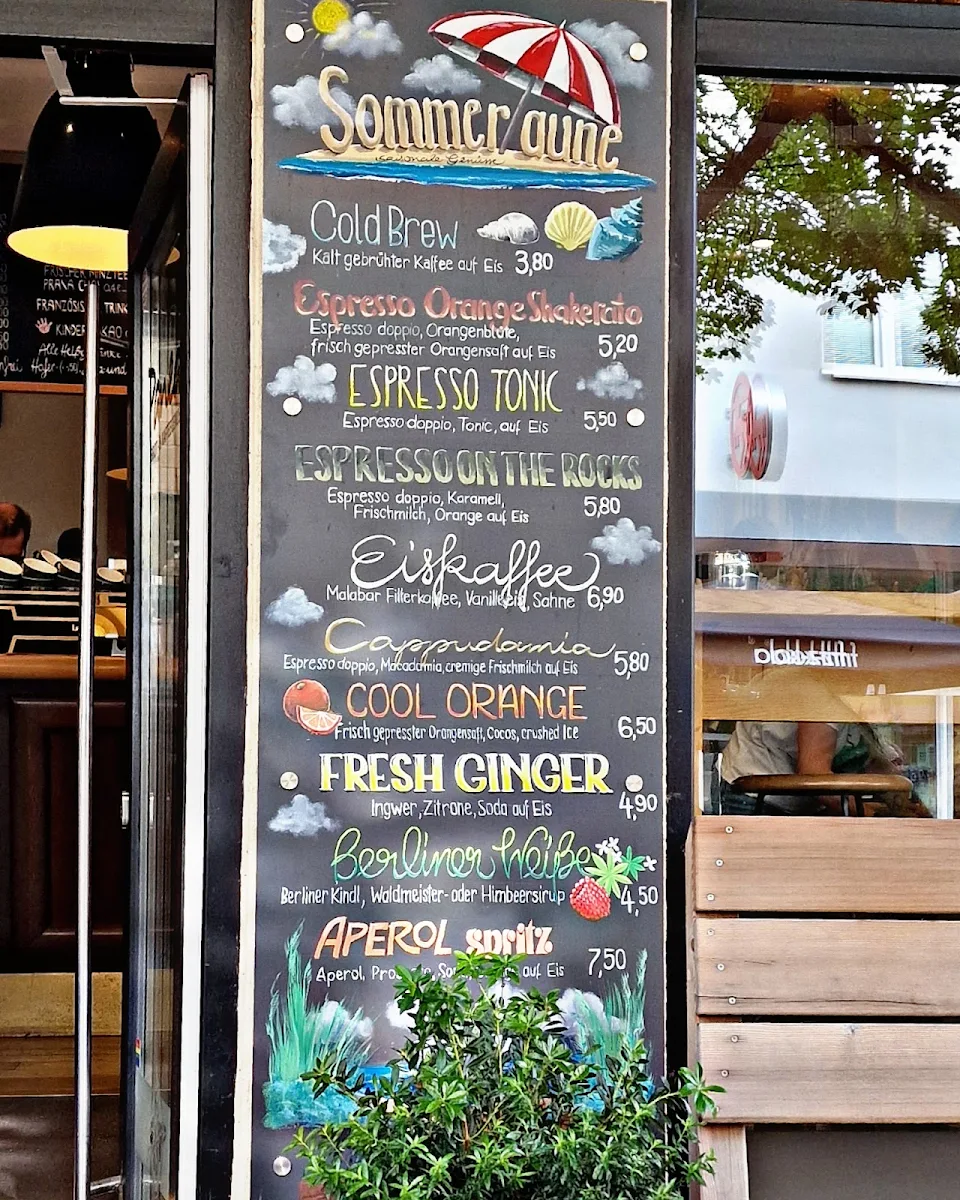 Sommerlaune
saisonale Genüsse
Cold Brew
Kalt gebrühter Kaffee auf Eis 3,80
Espresso Orange Shakerato
Espresso doppio, Orangenblüte,
frisch gepresster Orangensaft auf Eis 5,20
ESPRESSO TONIC
Espresso doppio, Tonic, auf Eis 5,50
ESPRESSO ON THE ROCKS
Espresso doppio, Karamell,
Frischmilch, Orange auf Eis 5,80
Eiskaffee
Malabar Filterkaffee, Vanilleeis, Sahne 6,90
Cappudamia
Espresso doppio, Macadamia, cremige Frischmilch auf Eis 5,80
COOL ORANGE
Frisch gepresster Orangensaft, Cocos, crushed Ice 6,50
FRESH GINGER
Ingwer, Zitrone, Soda auf Eis 4,90
Berliner Weiße
Berliner Kindl, Waldmeister- oder Himbeersirup 4,50
APEROL spritz
Aperol, auf Eis 7,50
FRISCHER MINZTEE
FRANZÖSIS TRINK
KINDER KAO